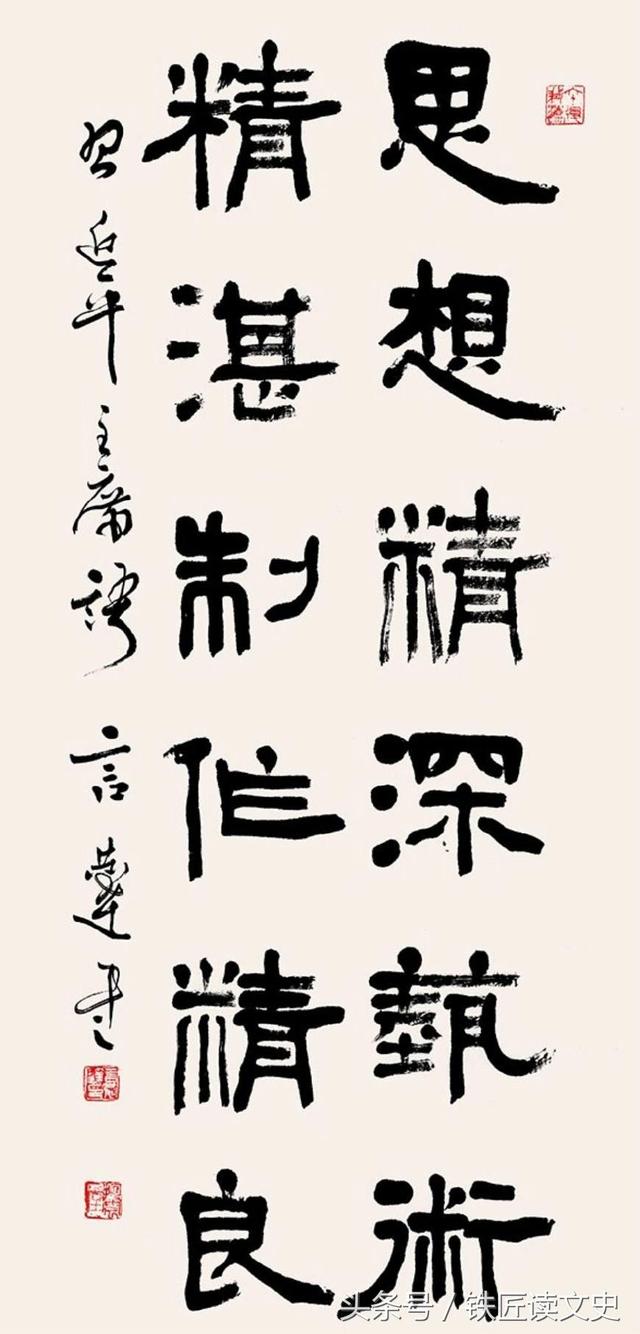 思想精深埶術
精湛制作精良
習近平主席語 言
头条号／铁匠读文史